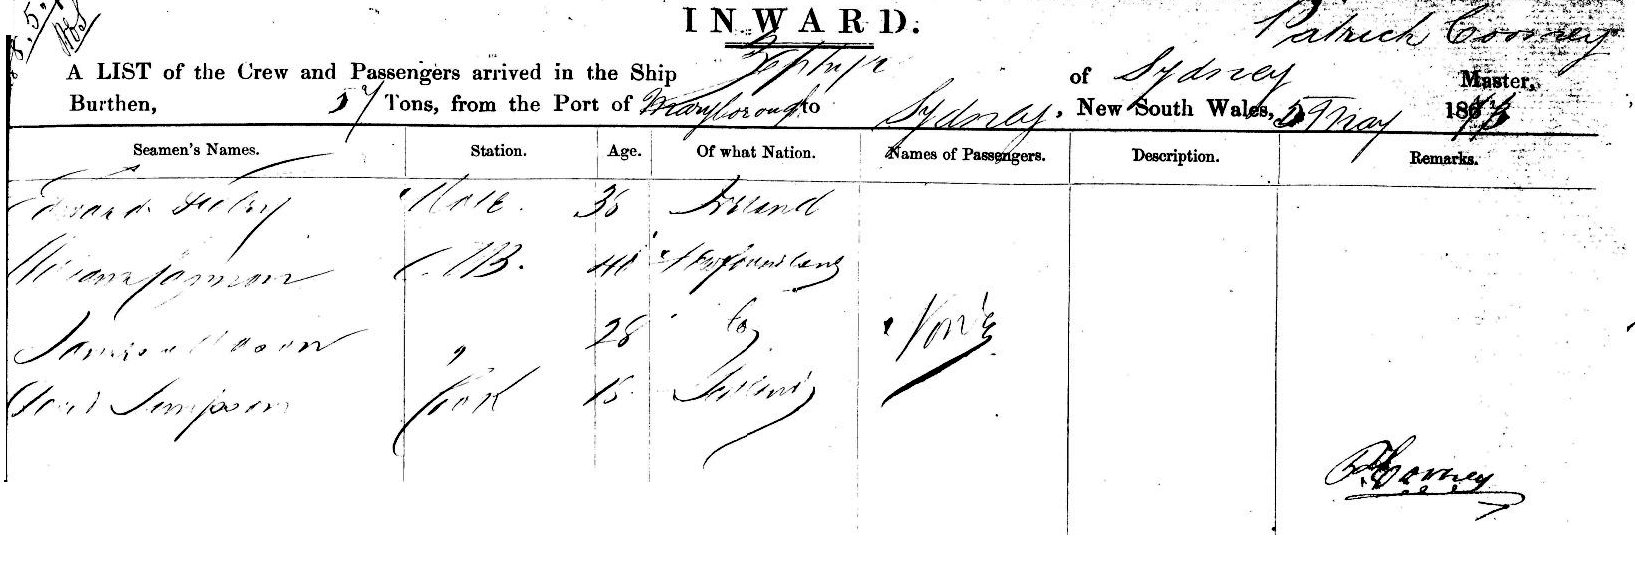 INWARD.
Patrick Cooney
A LIST of the Crew and Passengers arrived in the Ship Zephyr of Sydney Master,
Burthen, 57 Tons, from the Port of Maryborough to Sydney, New South Wales, 5 May 187
Seamen's Names. Station. Age. Of what Nation. Names of Passengers. Description. Remarks.
Edward Mate. 36 Ireland
William A.B. Newfoundland
James Mason " 28 None
David Simpson Cook 18
P. Cooney